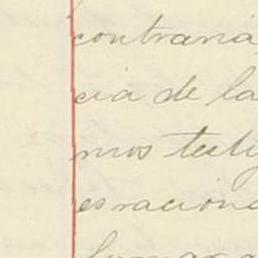 contraria
cia de la
mos testi
es racion